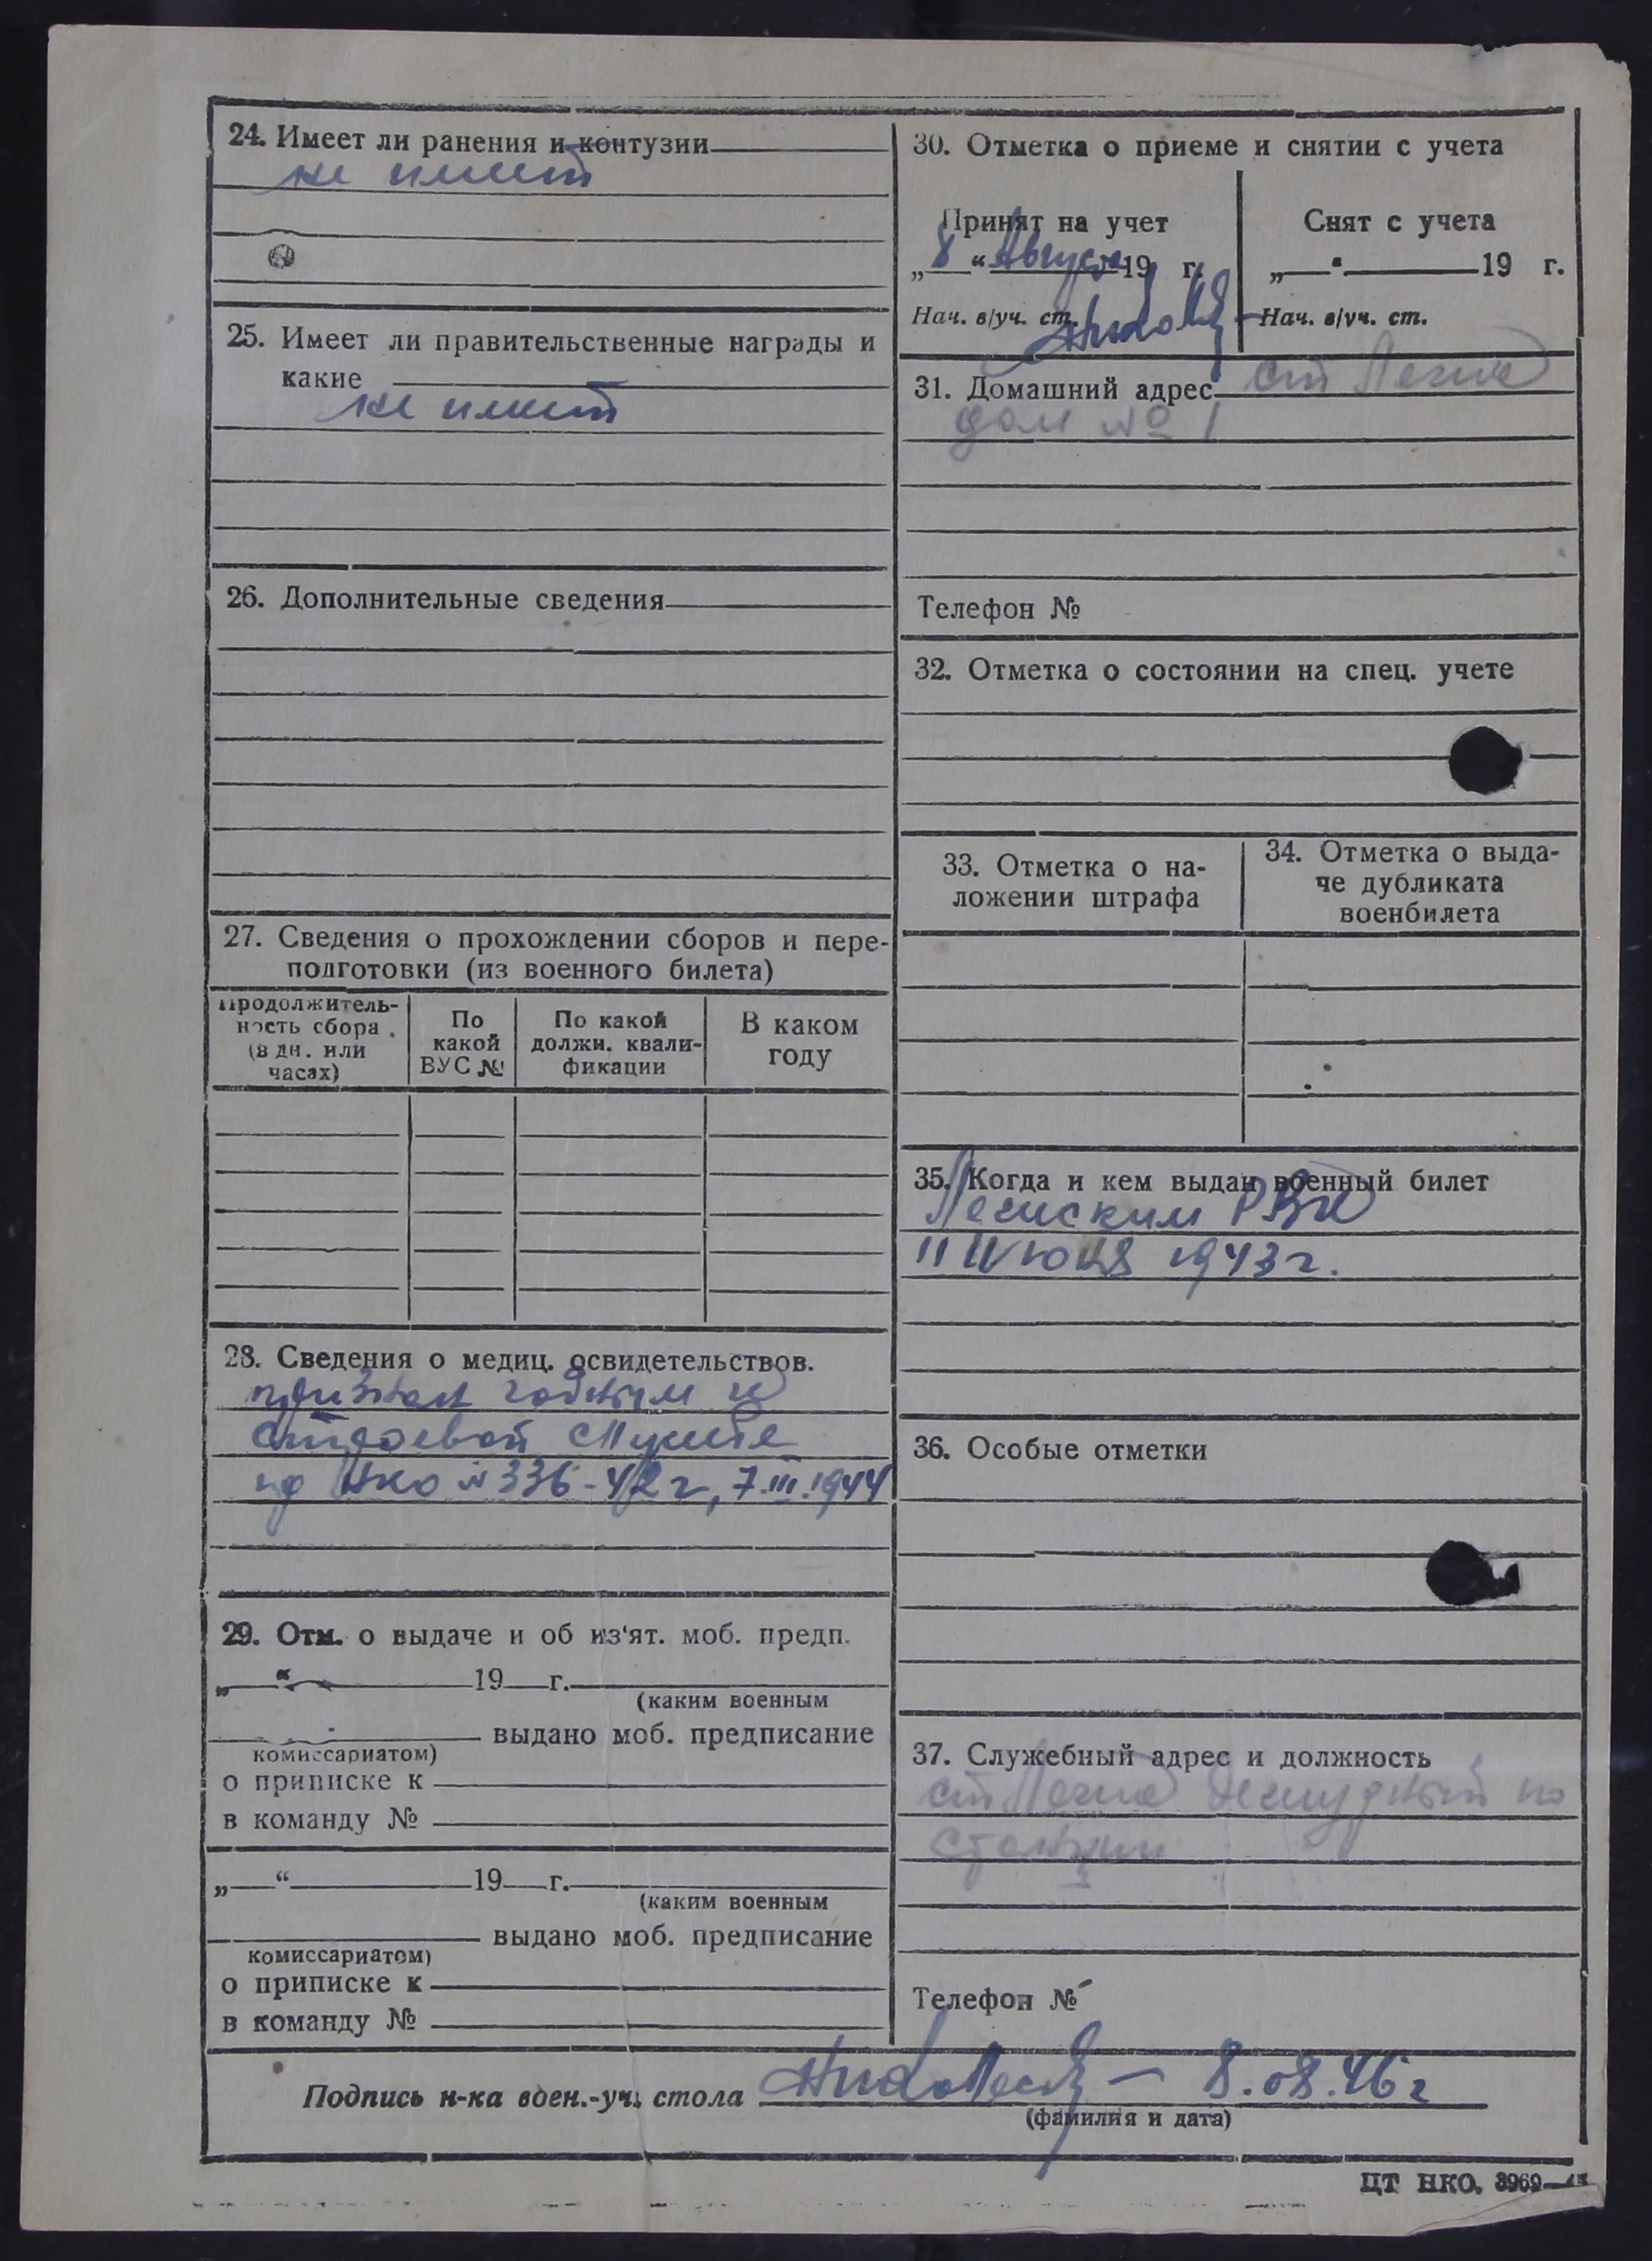 24. Имеет ли ранения и контузии
не имеет
25. Имеет ли правительственные награды и
какие
не имеет
26. Дополнительные сведения
27. Сведения о прохождении сборов и пере-
подготовки (из военного билета)
Продолжитель-
ность сбора
(в дн. или
часах)
По
какой
ВУС №
По какой
должн. квали-
фикации
В каком
году
28. Сведения о медиц. освидетельствов.
признан годным к
строевой службе
пр НКО №336-42г, 7.III.1944
29. Отм. о выдаче и об из‘ят. моб. предп.
„ “ 19 г.
(каким военным
выдано моб. предписание
комиссариатом)
о приписке к
в команду №
„ “ 19 г.
(каким военным
выдано моб. предписание
комиссариатом)
о приписке к
в команду №
30. Отметка о приеме и снятии с учета
Принят на учет
„8“ Августа 19 г.
Нач. в/уч. ст.
Снят с учета
„ “ 19 г.
Нач. в/уч. ст.
31. Домашний адрес ст
дом № 1
Телефон №
32. Отметка о состоянии на спец. учете
33. Отметка о на-
ложении штрафа
34. Отметка о выда-
че дубликата
военбилета
35. Когда и кем выдан военный билет
РВК
11 Июня 1943г.
36. Особые отметки
37. Служебный адрес и должность
ст дежурный по
станции
Телефон №
Подпись н-ка воен.-уч. стола 8.08.46г
(фамилия и дата)
ЦТ НКО. 3969—